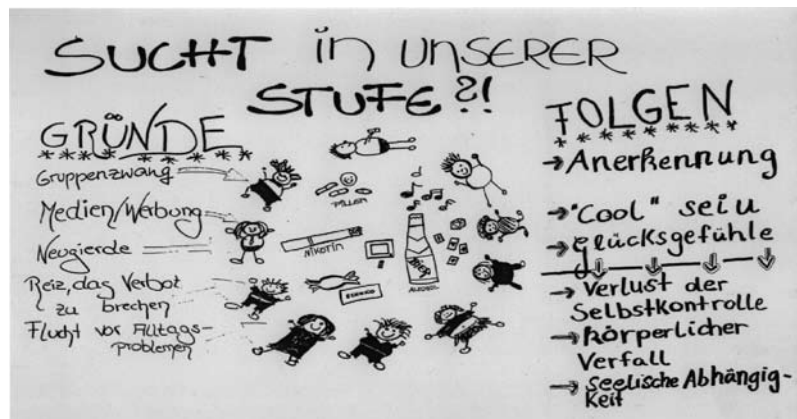 SUCHT in UNSERER
STUFE?!
GRÜNDE
Gruppenzwang
Medien/Werbung
Neugierde
Reiz, das Verbot
zu brechen
Flucht vor Alltags-
problemen
PILLEN
NIKOTIN
ALKOHOL
FOLGEN
→ Anerkennung
→ "Cool" sein
→ Glücksgefühle
→ Verlust der
Selbstkontrolle
→ körperlicher
Verfall
→ Seelische Abhängig-
keit